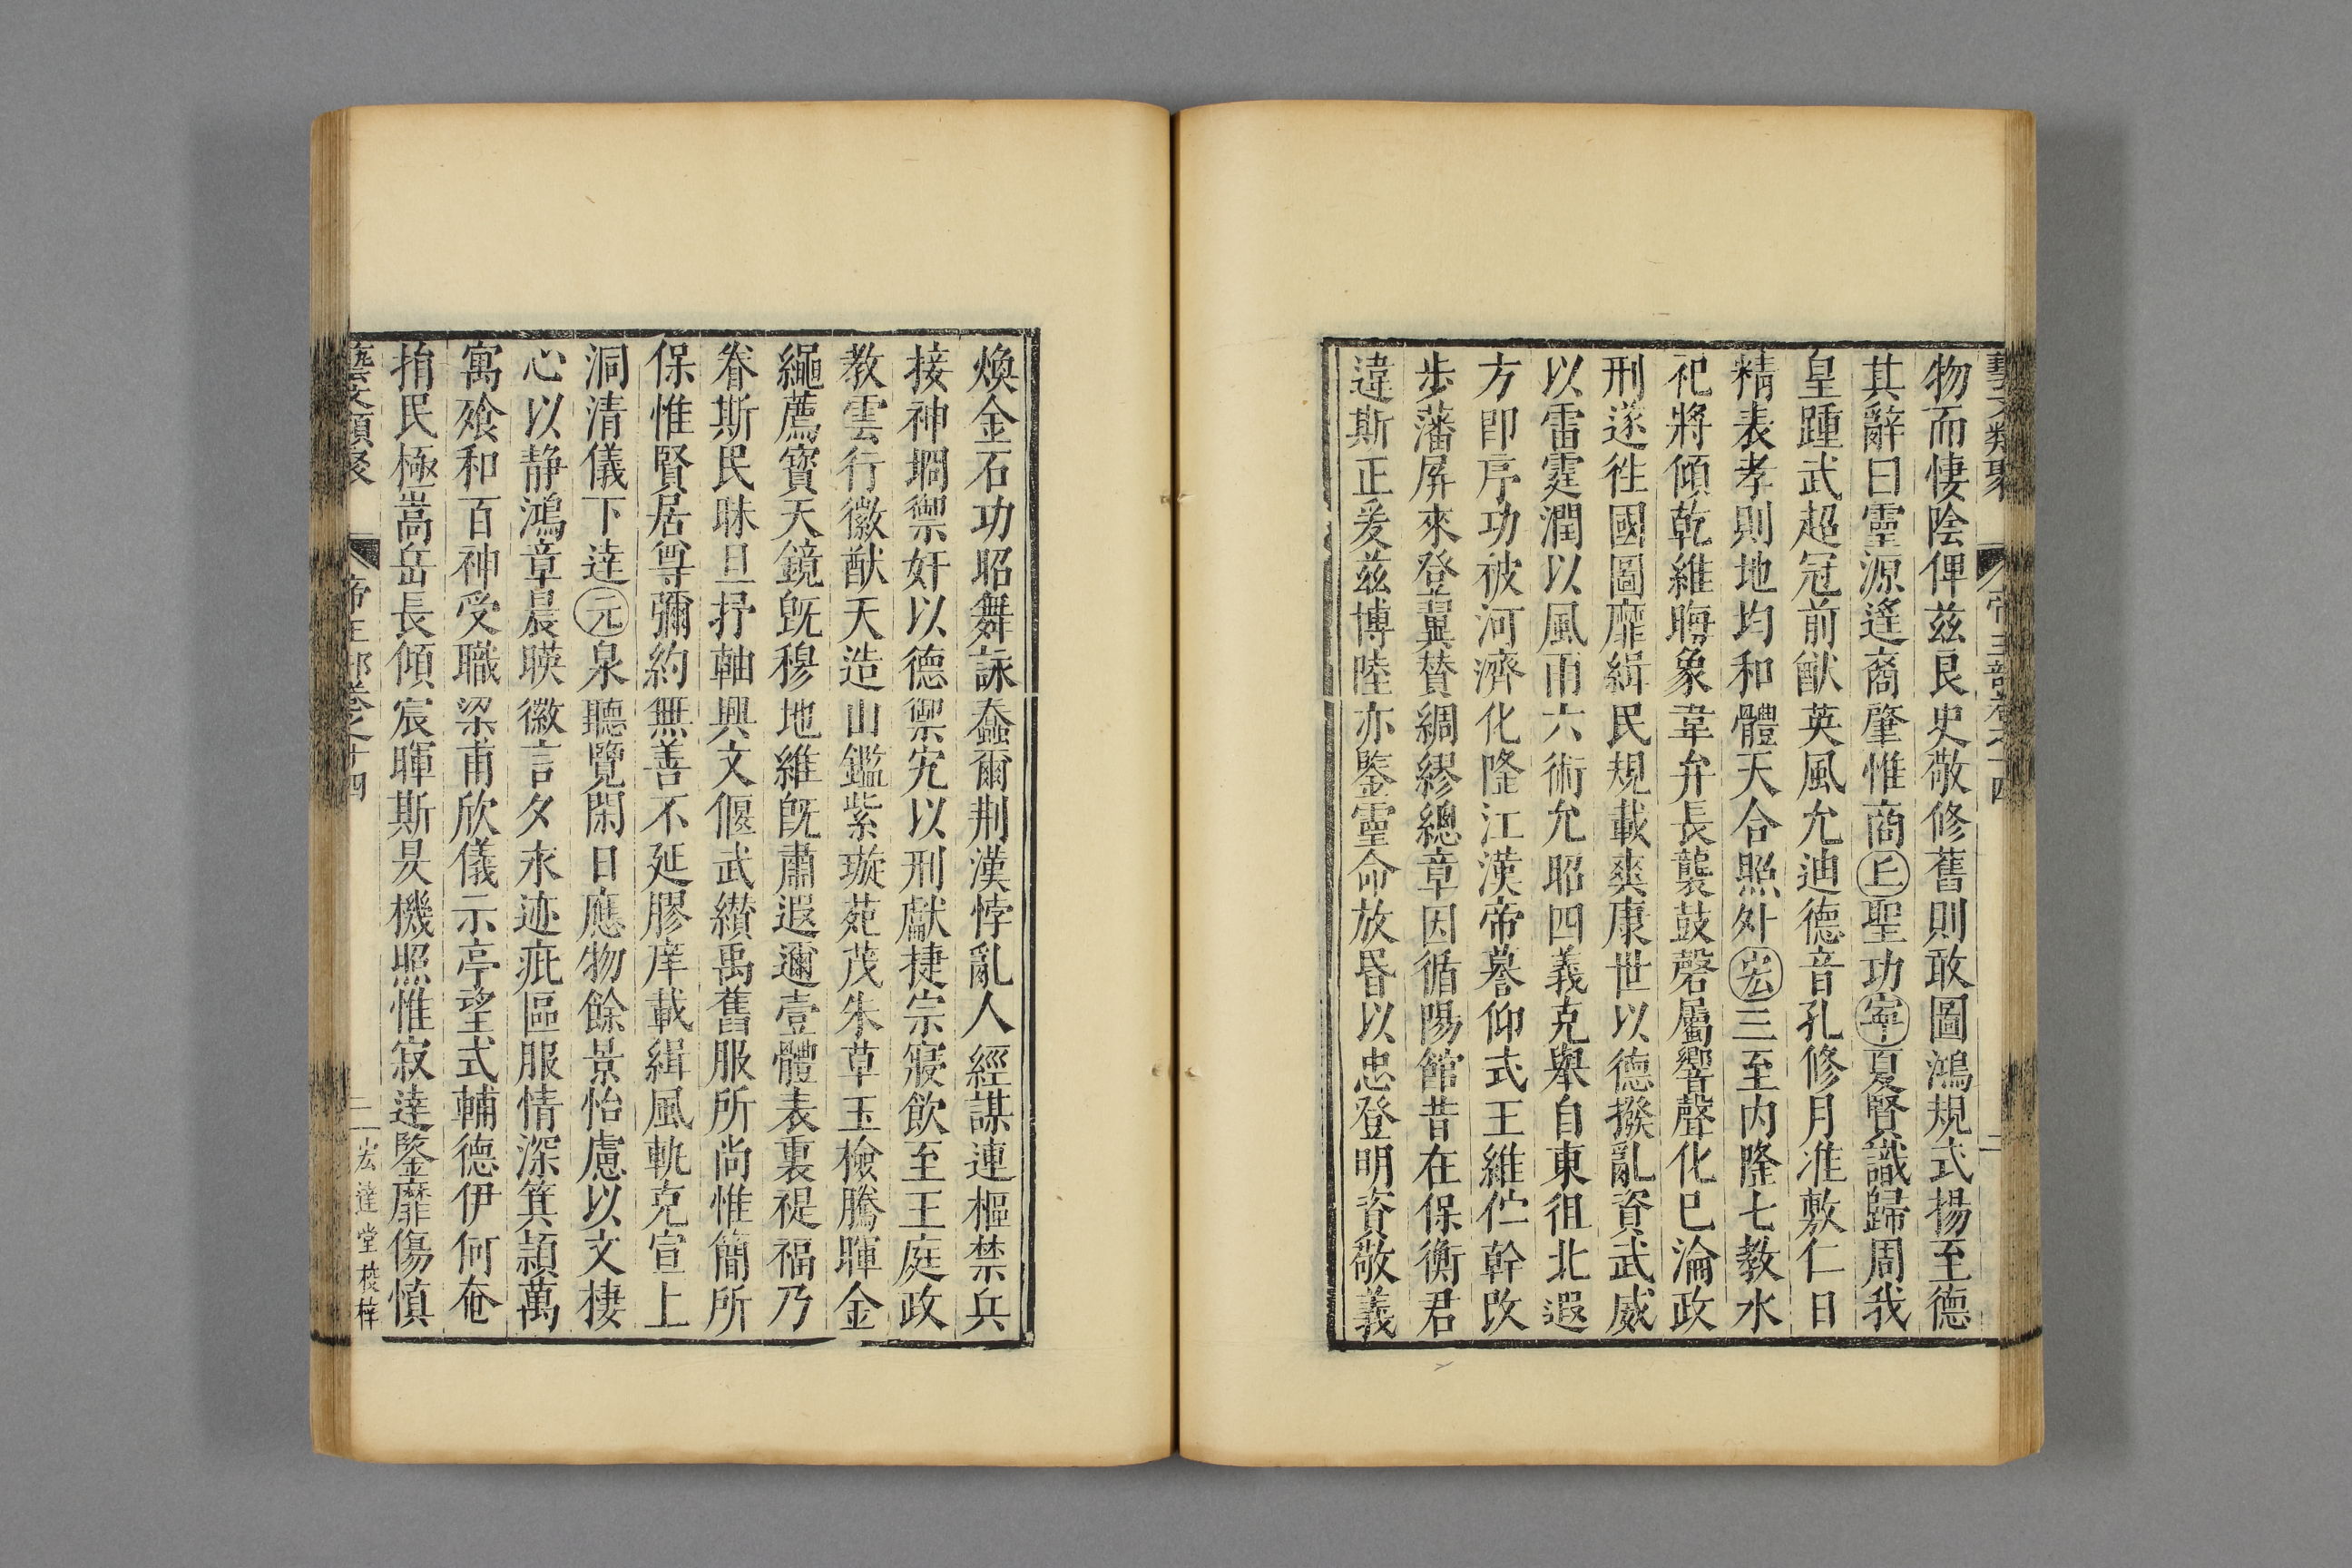 藝文類聚 帝王部卷之十四 二
物而悽陰俾茲良史敬修舊則敢圖鴻規式揚至德
其辭曰靈源遙裔肇惟商上聖功寧夏賢識歸周我
皇踵武超冠前猷英風允迪德音孔修月准敷仁日
精表孝則地均和體天合照外宏三至內隆七教水
祀將傾乾維晦象韋弁長襲鼓磬屬響聲化巳淪政
刑遂徃國圖靡緝民規載爽康世以德撥亂資武威
以雷霆潤以風雨六術允昭四義克舉自東徂北遐
方卽序功被河濟化隆江漢帝慕仰式王維伫幹改
步藩屏來登翼贊綢繆總章因循陽館昔在保衡君
違斯正爰茲博陸亦鑒靈命放昏以忠登明資敬義
煥金石功昭舞詠蠢爾荆漢悖亂人經謀連樞禁兵
接神堈禦奸以德禦宄以刑獻捷宗寢飲至王庭政
教雲行徽猷天造山鑑紫璇苑茂朱草玉檢騰暉金
繩薦寶天鏡旣穆地維旣肅遐邇壹體表裏禔福乃
眷斯民昧旦抒軸興文偃武纉禹舊服所尚惟簡所
保惟賢居尊彌約無善不延膠庠載緝風軌克宣上
洞清儀下達元泉聽覽閑日應物餘景怡慮以文棲
心以静鴻章晨暎徽言夕永迹疵區服情深箕潁萬
寓飱和百神受職梁甫欣儀示亭望式輔德伊何奄
捐民極嵩岳長傾宸暉斯昃機照惟寂達鑒靡傷慎
藝文類聚 帝王部卷之十四 三 宏達堂校梓